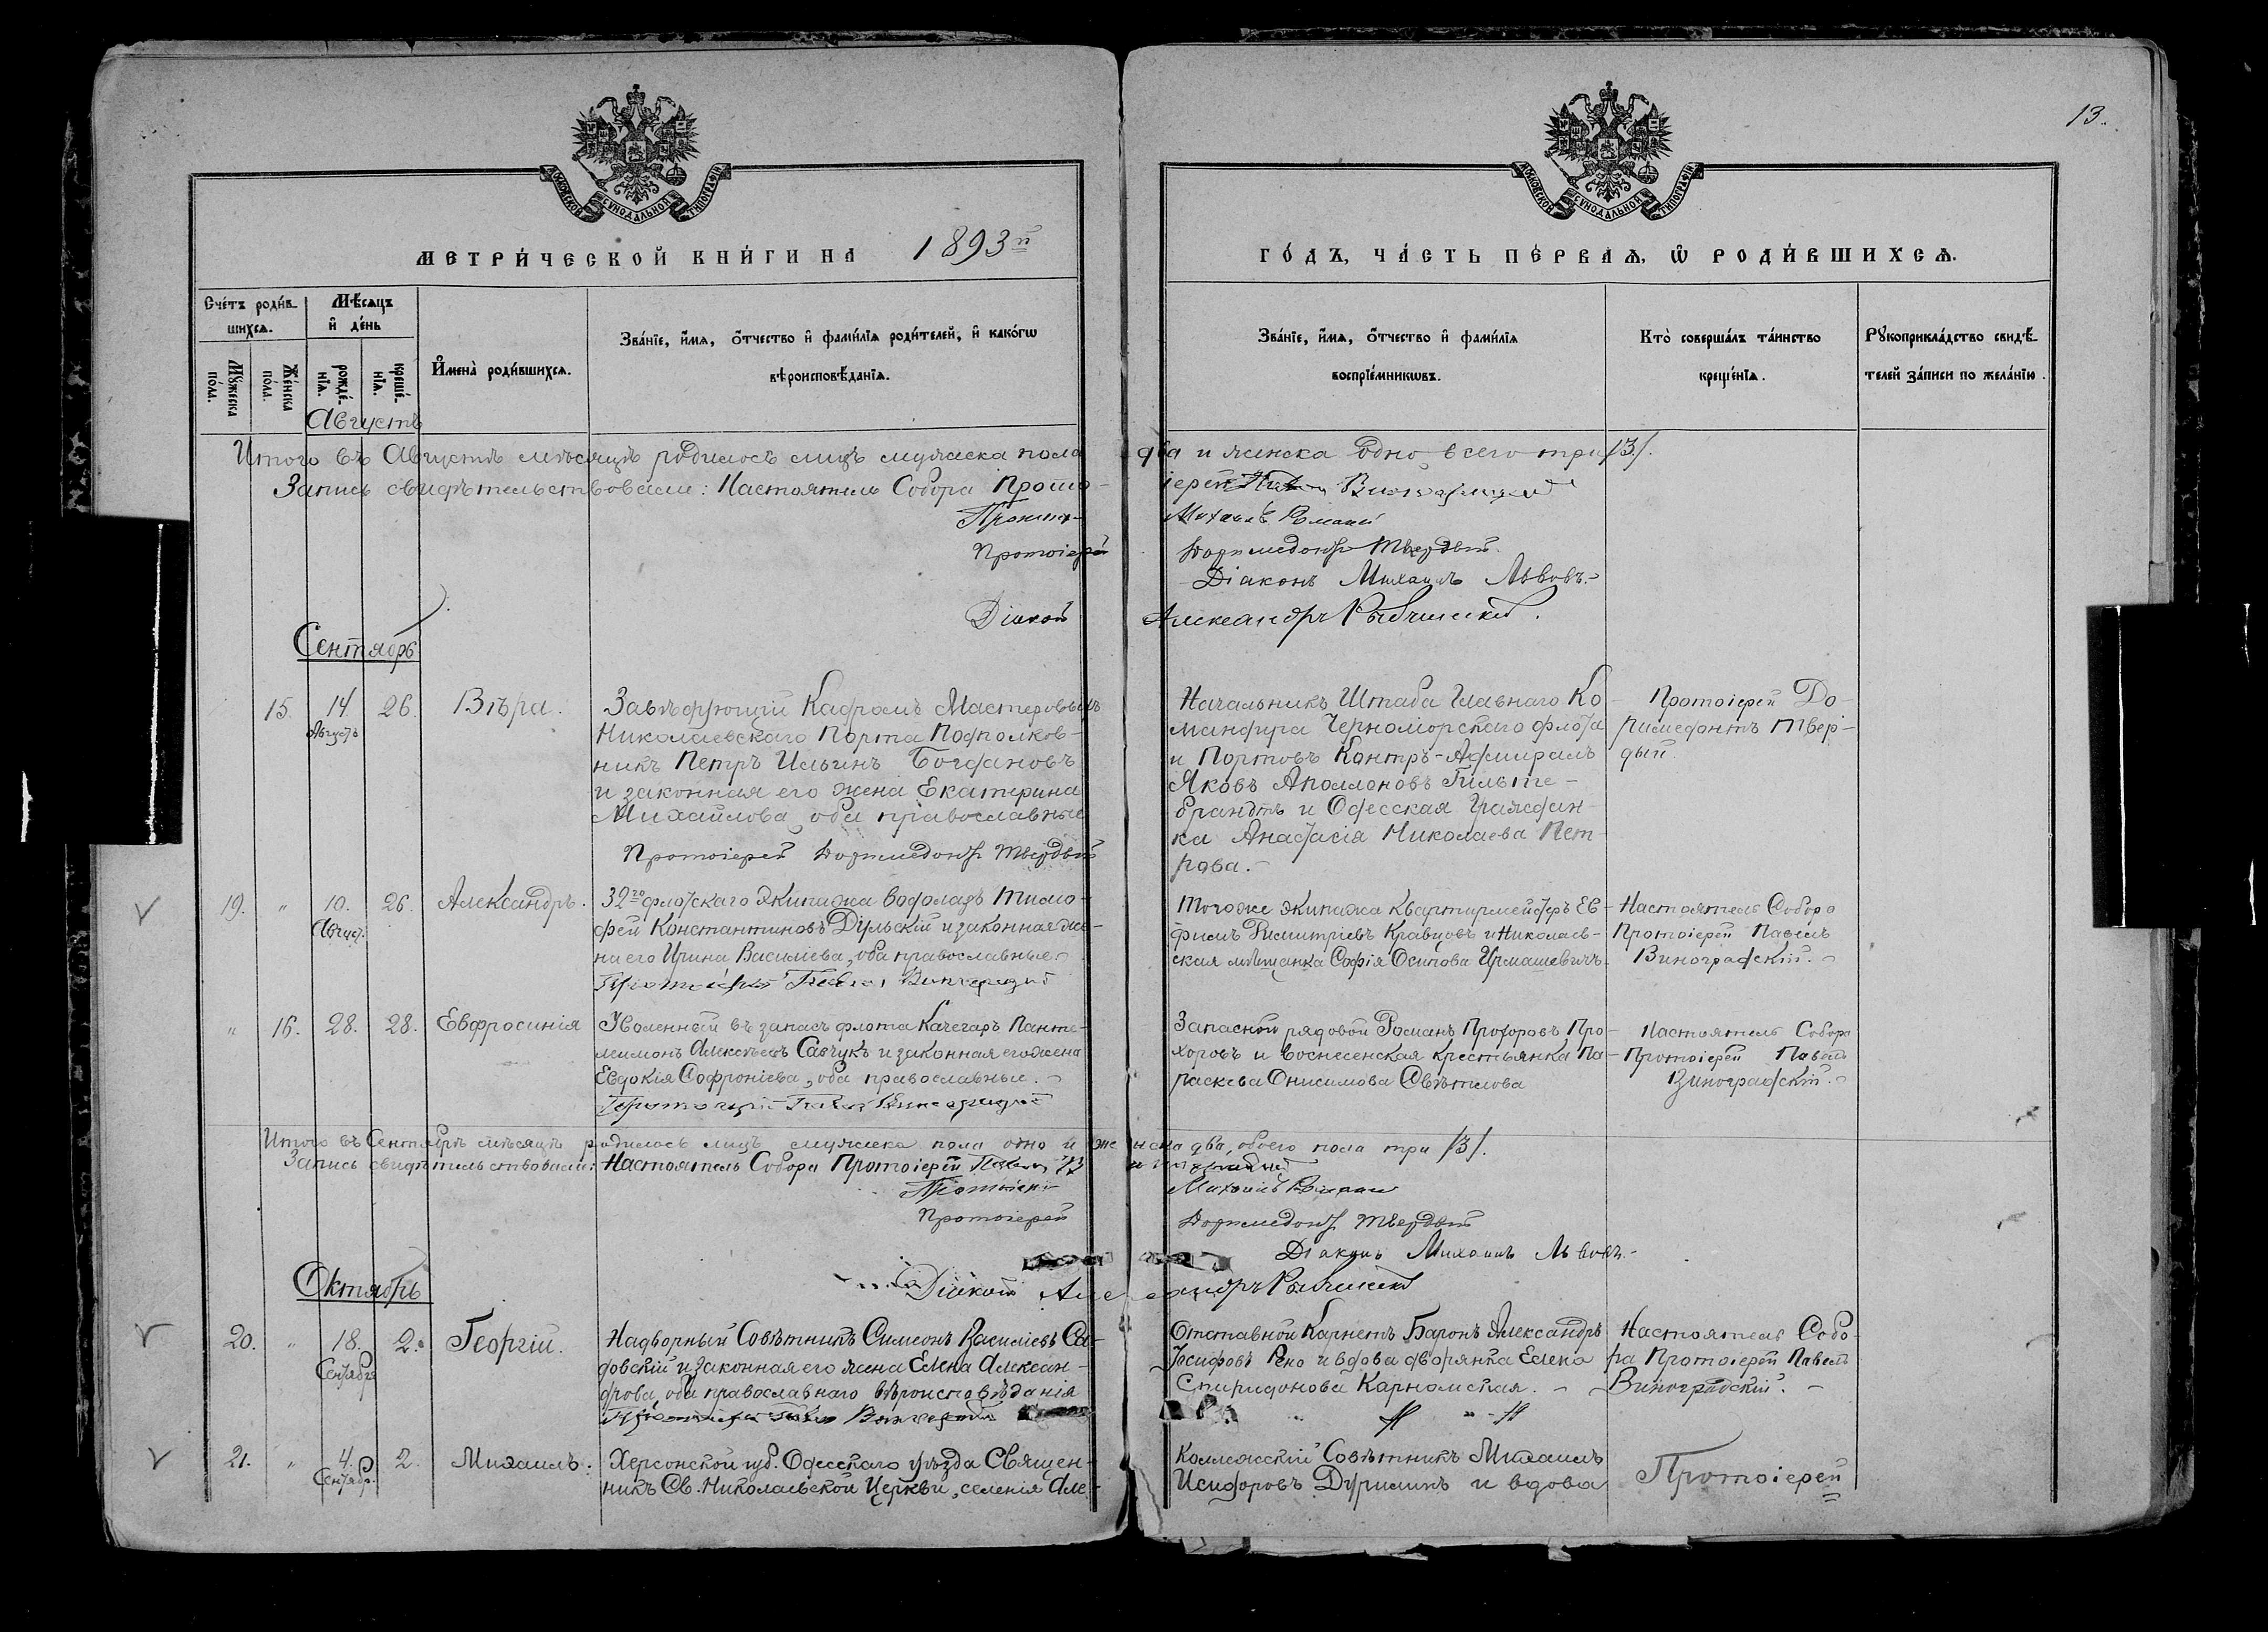 13.
МОСКОВСКОЙ СѴНОДАЛЬНОЙ ТИПОГРАФІИ
МОСКОВСКОЙ СѴНОДАЛЬНОЙ ТИПОГРАФІИ
МЕТРИ́ЧЕСКОЙ КНИ́ГИ НА 1893й
ГО́ДЪ, ЧА́СТЬ ПЕ́РВАѦ, Ѡ РОДИ́ВШИХСѦ.
Сче́тъ роди́в-
шихсѧ.
Мѣ́сѧцъ
и҆ де́нь
Мꙋ́жеска
по́ла.
Же́нска
по́ла.
рожде́-
нїѧ.
креще́-
нїѧ.
И҆мена̀ роди́вшихсѧ.
Зва́нїе, и҆́мѧ, ѻ҆́тчество и҆ фами́лїѧ роди́телей, и҆ како́гѡ
вѣроисповѣ́данїѧ.
Зва́нїе, и҆́мѧ, ѻ҆́тчество и҆ фами́лїѧ
воспрїе́мникѡвъ.
Кто̀ соверша́лъ та́инство
креще́нїѧ.
Рꙋкоприкла́дство свидѣ́-
телей за́писи по жела́нїю.
Августъ
Итого въ Августѣ мѣсяцѣ родилось лицъ мужеска пола два и женска одно, всего три /3/.
Запись свидѣтельствовали: Настоятель Собора Прото-
іерей
Михаилъ
Протоіерей Доримедонтъ Твердый
Діаконъ Михаилъ Львовъ.
Діаконъ Александръ
Сентябрь
15. 14 26. Вѣра.
Августъ
Завѣдующій Кадромъ Мастеровыхъ
Николаевскаго Порта Подполков-
никъ Петръ Ильинъ Богдановъ
и законная его жена Екатерина
Михайлова, оба православные
Протоіерей Доримедонтъ Твердый
Начальникъ Штаба Главнаго Ко-
мандира Черноморскаго флота
и Портовъ Контръ-Адмиралъ
Яковъ Аполлоновъ Гильте-
брандтъ и Одесская Граждан-
ка Анастасія Николаева Пет-
рова.
Протоіерей До-
римедонтъ Твер-
дый.
19. " 10. 26. Александръ.
Август.
32го флотскаго экипажа водолазъ Тимо-
фей Константиновъ Дульскій и законная же-
на его Ирина Василіева, оба православные
Протоіерей Павелъ Виноградскій
Того же экипажа квартирмейстеръ Ев-
фимъ Димитріевъ Кравцовъ и Николаев-
ская мѣщанка Софія Осипова Ирмашевичъ.
Настоятель Собора
Протоіерей Павелъ
Виноградскій.
" 16. 28. 28. Евфросинія
Уволенный въ запасъ флота Качегаръ Панте-
леимонъ Алексѣевъ Савчукъ и законная его жена
Евдокія Софроніева, оба православные.
Протоіерей Павелъ Виноградскій
Запасной рядовой Романъ Прохоровъ Про-
хоровъ и Вознесенская крестьянка Па-
раскева Онисимова Свѣтлова
Настоятель Собора
Протоіерей Павелъ
Виноградскій.
Итого въ Сентябрѣ мѣсяцѣ родилось лицъ мужеска пола одно и женска два, обоего пола три /3/.
Запись свидѣтельствовали: Настоятель Собора Протоіерей Павелъ
Протоіерей Михаилъ
Протоіерей Доримедонтъ Твердый
Діаконъ Михаилъ Львовъ.
Діаконъ Александръ
Октябрь
20. " 18. 2. Георгій.
Сентябр.
Надворный Совѣтникъ Симеонъ Василіевъ Са-
довскій и законная его жена Елена Алексан-
дрова, оба православнаго вѣроисповѣданія
Протоіерей Павелъ Виноградскій
Отставной Карнетъ Баронъ Александръ
Іосифовъ Рено и вдова дворянка Елена
Спиридонова
Настоятель Собо-
ра Протоіерей Павелъ
Виноградскій.
21. " 4. 2. Михаилъ.
Сентябр.
Херсонской губ. Одесскаго уѣзда Священ-
никъ Св. Николаевской Церкви, селенія Але-
Коллежскій Совѣтникъ Михаилъ
Исидоровъ Дурилинъ и вдова
Протоіерей